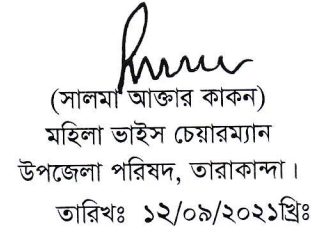 (সালমা আক্তার কাকন)
মহিলা ভাইস চেয়ারম্যান
উপজেলা পরিষদ, তারাকান্দা।
তারিখঃ ১২/০৯/২০২১খ্রিঃ